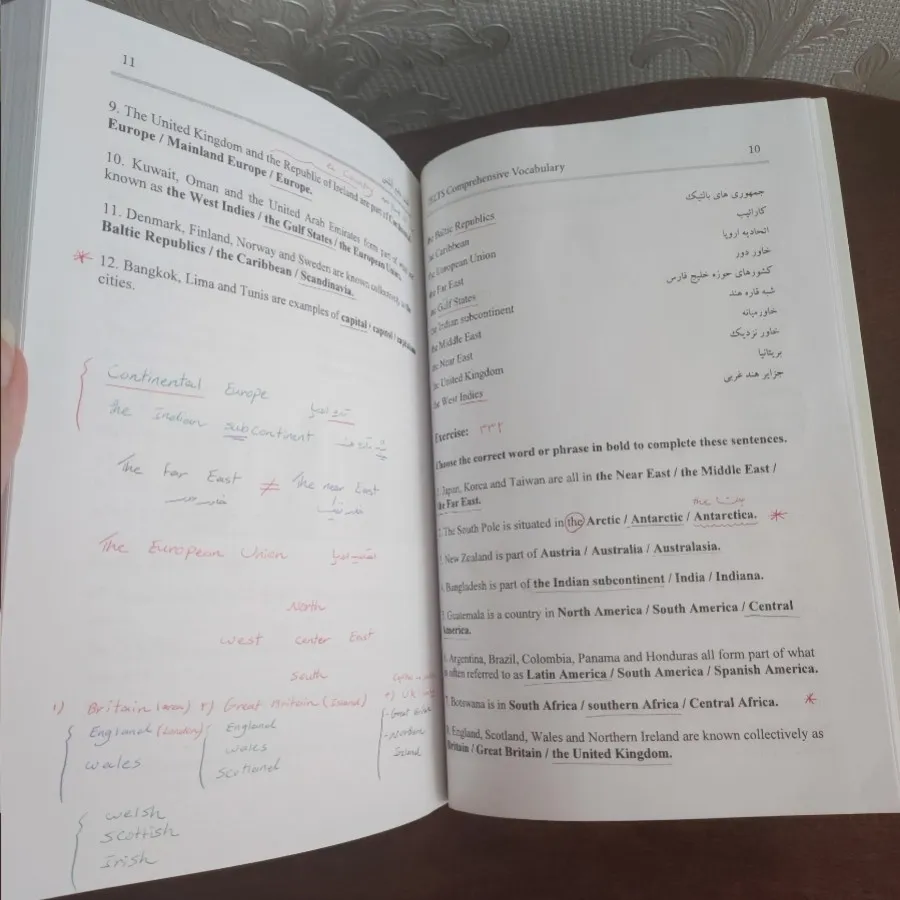 10
IELTS Comprehensive Vocabulary
the Baltic Republics جمهوری های بالتیک
the Caribbean کارائیب
the European Union اتحادیه اروپا
the Far East خاور دور
the Gulf States کشورهای حوزه خلیج فارس
the Indian subcontinent شبه قاره هند
the Middle East خاورمیانه
the Near East خاور نزدیک
the United Kingdom بریتانیا
the West Indies جزایر هند غربی
Exercise: ۳۳۲
Choose the correct word or phrase in bold to complete these sentences.
Japan, Korea and Taiwan are all in the Near East / the Middle East /
the Far East.
the
The South Pole is situated in the Arctic / Antarctic / Antarctica. *
New Zealand is part of Austria / Australia / Australasia.
Bangladesh is part of the Indian subcontinent / India / Indiana.
5. Guatemala is a country in North America / South America / Central
America.
Argentina, Brazil, Colombia, Panama and Honduras all form part of what
is often referred to as Latin America / South America / Spanish America.
7. Botswana is in South Africa / southern Africa / Central Africa. *
England, Scotland, Wales and Northern Ireland are known collectively as
Britain / Great Britain / the United Kingdom.
11
9. The United Kingdom and the Republic of Ireland are part of
Europe / Mainland Europe / Europe.
10. Kuwait, Oman and the United Arab Emirates form part of what are
known as the West Indies / the Gulf States / the European Union.
11. Denmark, Finland, Norway and Sweden are known collectively as the
Baltic Republics / the Caribbean / Scandinavia.
* 12. Bangkok, Lima and Tunis are examples of capital / capitol /
cities.
Continental Europe
the Indian subcontinent
The Far East ≠ The near East
The European Union
North
West Center East
South
1) Britain (area) ۲) Great Britain (Island)
England (London) England
Wales Wales
Scotland
Welsh
Scottish
Irish